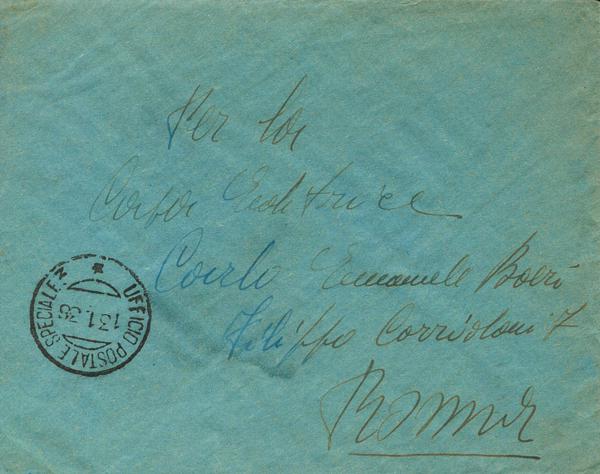 Per la
Casa Editrice
Carlo Emanuele Boeri
Filippo Corridoni 7
Roma
UFFICIO POSTALE SPECIALE 2
13.1.36